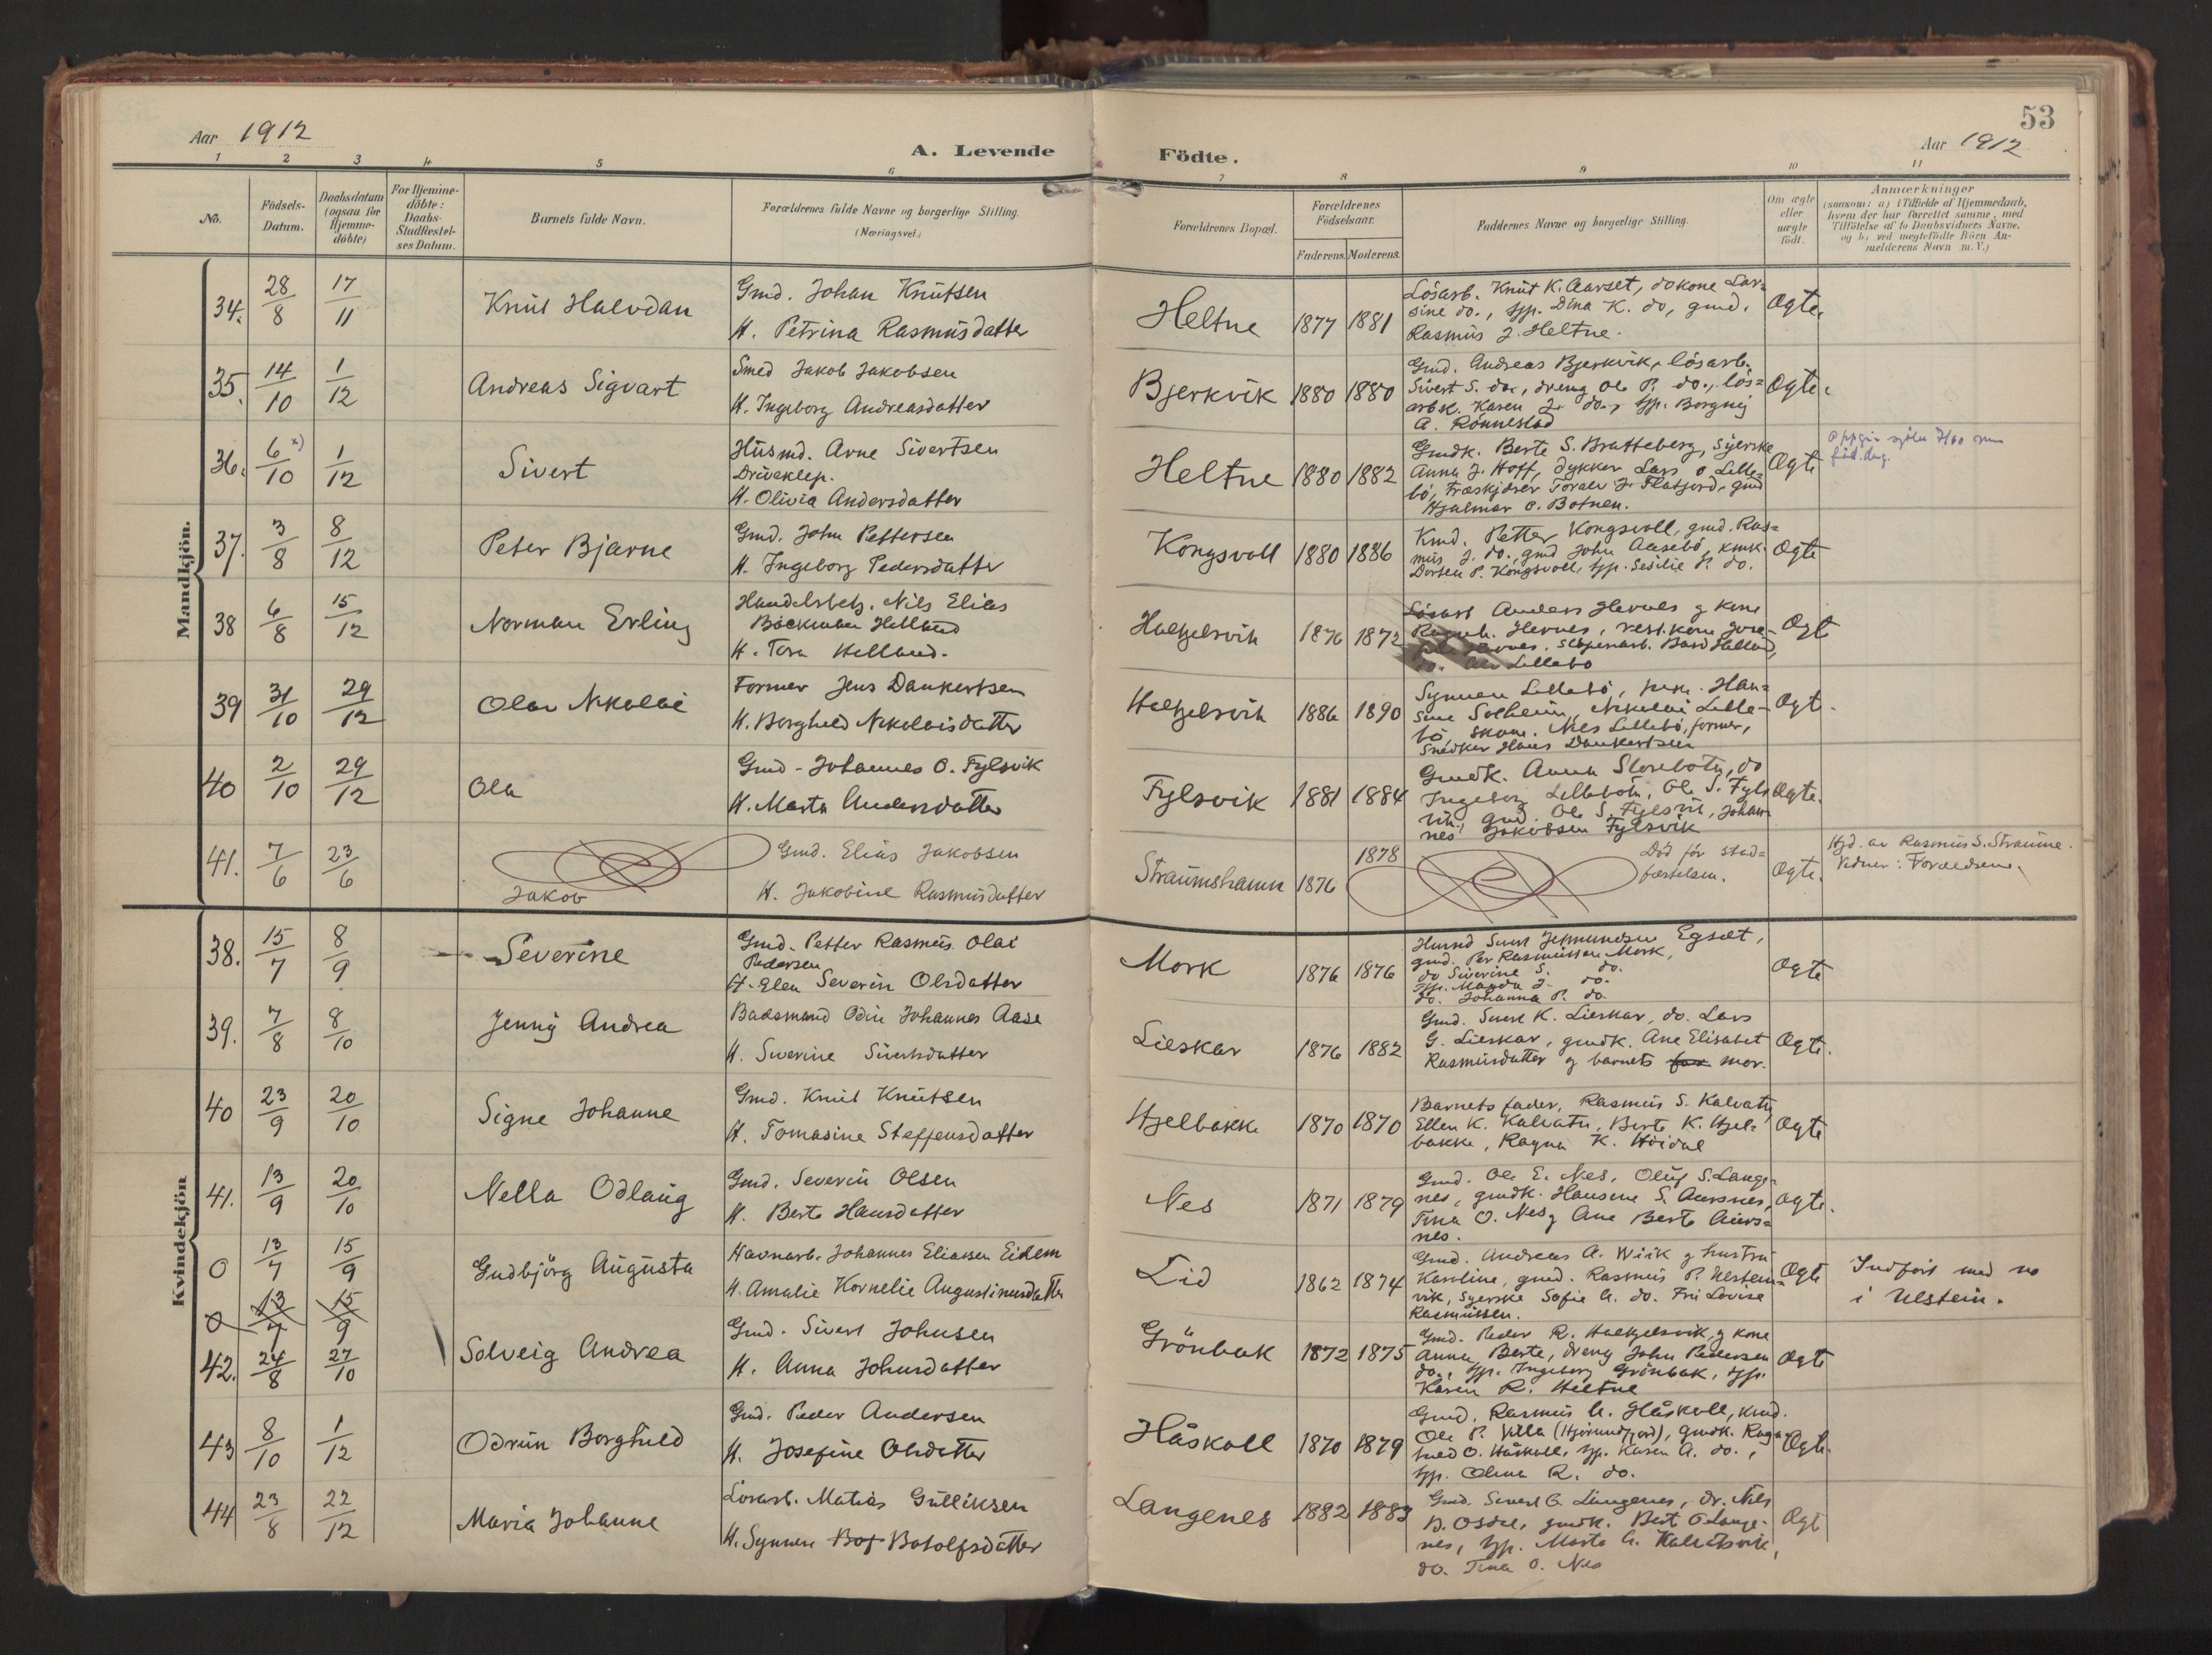 53
Aar 1912
A. Levende Födte.
Aar 1912
1 2 3 4 5 6 7 8 9 10 11
No.
Födsels-Datum.
Daabsdatum (ogsaa for Hjemme-döbte)
For Hjemme-döbte: Daabs-Stadfæstel-ses Datum.
Barnets fulde Navn.
Forældrenes fulde Navne og borgerlige Stilling.
(Næringsvei.)
Forældrenes Bopæl.
Forældrenes Födselsaar.
Faderens. Moderens.
Faddernes Navne og borgerlige Stilling.
Om ægte eller uægte födt.
Anmærkninger
(saasom: a) i Tilfælde af Hjemmedaab,
hvem der har forrettet samme, med
Tilföielse af to Daabsvidners Navne,
og b) ved uægtefödte Börn An-
melderens Navn m.V.)
Mandkjön.
34. 28/8 17/11 Knut Halvdan
Gmd. Johan Knutsen
H. Petrina Rasmusdatter
Heltne 1877 1881
Lösarb. Knut K. Aarset, do kone Lar-
sine do., typ. Dina K. do, gmd.
Rasmus J. Heltne.
Ogte.
35. 14/10 1/12 Andreas Sigvart
Smed Jakob Jakobsen
H. Ingeborg Andreasdatter
Bjerkvik 1880 1880
Gmd. Andreas Bjerkvik, lösarb.
Sivert S. do., dreng Ole P. do., lös=
arbk. Karen J. do., typ. Borgny
A. Rönnestad
Ogte.
36. 6/10 x) 1/12 Sivert
Husmd. Arne Sivertsen
Driveklep.
H. Olivia Andersdatter
Heltne 1880 1882
Gmdk. Berte S. Bratteberg, syerske
Anna J. Hoff, dykker Lars O. Lille-
bö, Træskjærer Toralv J. Flatjord, gmd
Hjalmar O. Botnen.
Ogte
37. 3/8 8/12 Peter Bjarne
Gmd. John Pettersen
H. Ingeborg Pedersdatter
Kongsvoll 1880 1886
Kmd. Petter Kongsvoll, gmd. Ras=
mus J. do., gmd John Aasebö, kmk.
Dorten P. Kongsvoll, typ. Sesilie P. do.
Ogte
38 6/8 15/12 Norman Erling
Handelsbetj. Nils Elias
Böckman Helland
H. Tora Helland.
Halkjelsvik 1876 1872
Lösarb Anders Hevnes g kone
Ragnh. Hevnes, rest. kone Jose-
Slöpenarb. Bard Helland,
Lillebö
Ogt
39 31/10 29/12 Olav Nikolai
Former Jens Dankertsen
H. Borghild Nikolaisdatter
Halkjelsvik 1886 1890
Synnen Lillebö, Han-
sine Solheim, Nikolai Lille-
bö, Nils Lillebö, former,
Snedker Hans Dankertsen
Ogt.
40 2/10 29/12 Ola
Gmd - Johannes O. Fylsvik
H. Marta Andersdatter
Fylsvik 1881 1884
Gmdk. Anna Storebotn, do
Ingeborg Lillebotn, Ole S. Fyls
vik, gmd. Ole S. Fylsvik, Johan
nes Jakobsen Fylsvik
Ogte.
41. 7/6 23/6 Jakob
Gmd. Elias Jakobsen
H. Jakobine Rasmusdatter
Straumshamn 1876 1878
Död för stad=
fæstelsen.
Ogte.
Hjd. av Rasmus S. Straume.
Vidner: Forældrene.
Kvindekjön
38. 15/7 8/9 Severine
Gmd. Petter Rasmus Olai
Pedersen
H. Elen Severin Olsdatter
Mork 1876 1876
Husmd Sivert Jetmundsen Egset,
gmd. Per Rasmussen Mork,
do Siverine S. do.
typ. Magda J. do.
do. Johanna P. do
Ogte
39. 7/8 8/10 Jenny Andrea
Baadsmand Odin Johannes Aase
H. Siverine Sivertsdatter
Lieskar 1876 1882
Gmd. Sivert K. Lieskar, do. Lars
G. Lieskar, gmdk. Ane Elisabet
Rasmusdatter g barnets far mor.
Ogte.
40 23/9 20/10 Signe Johanne
Gmd. Knut Knutsen
H. Tomasine Steffensdatter
Hjelbakke 1870 1870
Barnets fader, Rasmus S. Kalvatn,
Ellen K. Kalvatn, Berte K. Hjel-
bakke, Ragna K. Höidal
Ogte
41. 13/9 20/10 Nella Odlaug
Gmd. Severin Olsen
H. Berte Hansdatter
Nes 1871 1879
Gmd. Ole E. Nes, Oluf S. Lange-
nes, gmdk. Hansine S. Aursnes,
Tina O. Nes g Ane Berte Aurs=
nes.
Ogte.
0 13/7 15/9 Gudbjörg Augusta
Havnarb. Johannes Eliassen Eidem
H. Amalie Kornelie Augustinusdatter
Lid 1862 1874
Gmd. Andreas A. Wiik g hustru
Karoline, gmd. Rasmus P. Ulstein-
vik, Syerske Sofie A. do. Fru Lovise
Rasmussen.
Ogte
Indfört med no
i Ulstein.
0 13/7 15/9
42. 24/8 27/10 Solveig Andrea
Gmd. Sivert Johnsen
H. Anna Johnsdatter
Grönbak 1872 1875
Gmd. Peder R. Halkjelsvik, g kone
Anna Berte, dreng John Pedersen
do., typ. Ingeborg Grönbak, typ.
Karen R. Heltne
Ogte
43 8/10 1/12 Odrun Borghild
Gmd. Peder Andersen
H. Josefine Olsdatter
Håskoll 1870 1879
Gmd. Rasmus A. Håskoll, kmd.
Ole P. Villa (Hjörundfjord), gmdk. Ragn-
hild O. Håskoll, typ. Karen A. do.,
typ. Olina R. do.
Ogte.
44 23/8 22/12 Maria Johanne
Lösarb. Matias Gulliksen
H. Synnen Bot Botolfsdatter
Langenes 1882 1883
Gmd. Sivert G. Langenes, dr. Nils
B. Osdal, gmdk. Berit O Lange-
nes, typ. Marta A. Kalvatsvik,
do. Tina O. Nes
Ogt